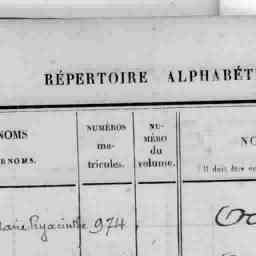 RÉPERTOIRE ALPHABÉT
NOMS
RÉNOMS.
NUMÉROS
ma-
tricules.
NU-
MÉRO
du
volume.
NO
(Il doit être
Marie Hyacinthe 974